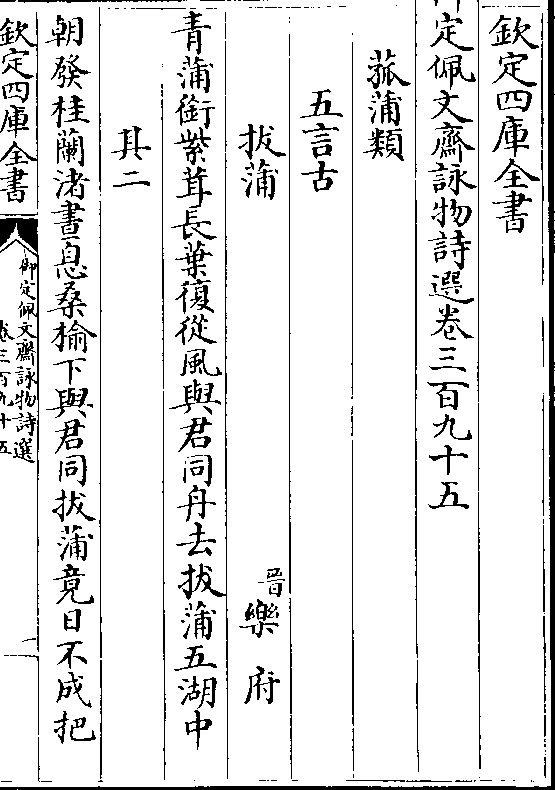 欽定四庫全書
定佩文齋詠物詩選卷三百九十五
菰蒲類
五言古
拔蒲
晉樂府
青蒲銜紫茸長葉復從風與君同舟去拔蒲五湖中
其二
朝發桂蘭渚晝息桑榆下與君同拔蒲竟日不成把
欽定四庫全書
御定佩文齋詠物詩選
卷三百九十五